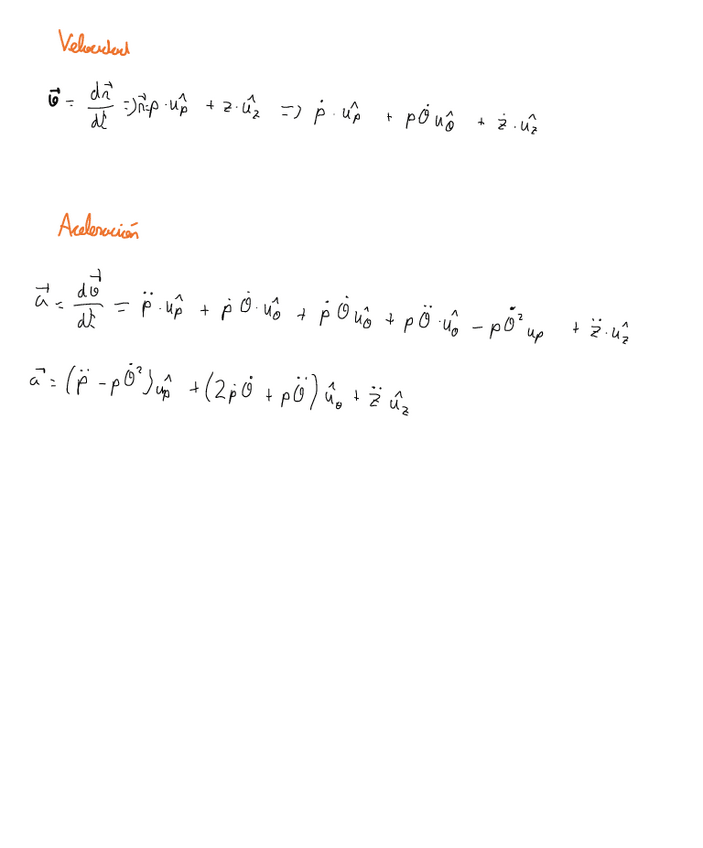 Velocidad
v⃗ = dr⃗/dt => r⃗ = ρ · û_ρ + z · û_z => ρ̇ · û_ρ + ρθ̇ û_θ + ż · û_z
Aceleración
a⃗ = dv⃗/dt = ρ̈ · û_ρ + ρ̇ θ̇ · û_θ + ρ̇ θ̇ û_θ + ρθ̈ · û_θ - ρθ̇² u_ρ + z̈ · û_z
a⃗ = (ρ̈ - ρθ̇²) û_ρ + (2ρ̇θ̇ + ρθ̈) û_θ + z̈ û_z